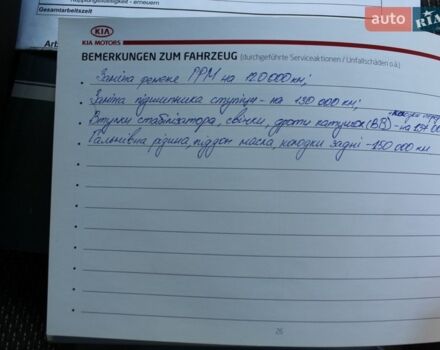 Kupplungsflüssigkeit - erneuern
Gesamtarbeitszeit
auto RIA
KIA
KIA MOTORS
BEMERKUNGEN ZUM FAHRZEUG (durchgeführte Serviceaktionen / Unfallschäden o.ä.)
Заміна ременя ГРМ на 120 000 км;
Заміна підшипника ступіци - на 130 000 км;
Втулки стабілізатора, свічки, дроти катушок (ВВ) - на 137 00
Гальмівна рідина, піддон масла, колодки задні - 150 000 км
26